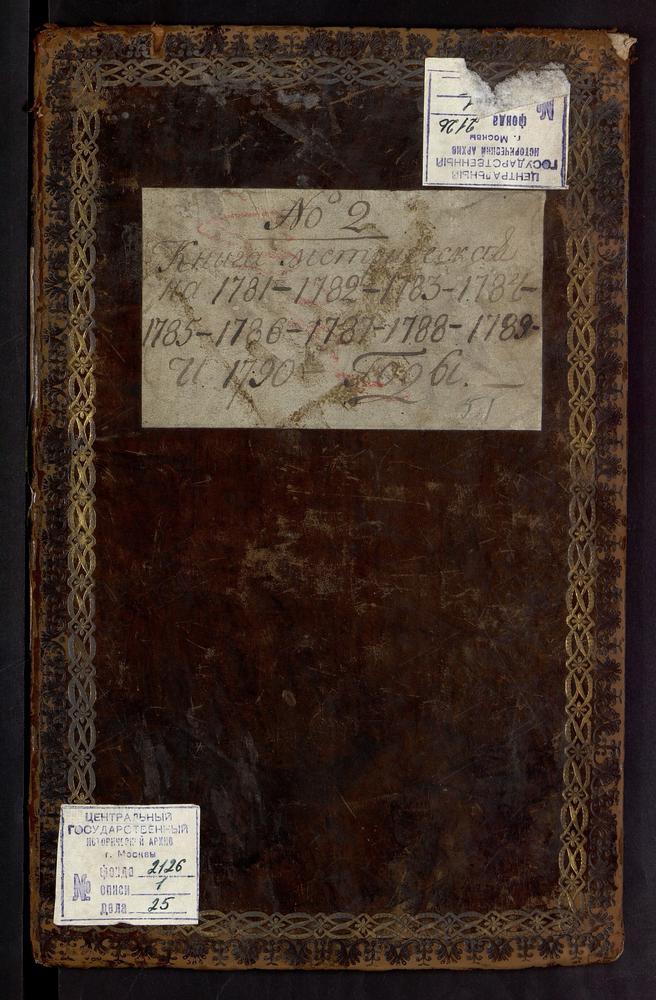 №
фонда 2126
г. Москвы
ИСТОРИЧЕСКИЙ АРХИВ
ГОСУДАРСТВЕННЫЙ
ЦЕНТРАЛЬНЫЙ
№ 2
Книга метрическая
на 1781-1782-1783-1784-
1785-1786-1787-1788-1789-
И 1790 - Годы.
51
ЦЕНТРАЛЬНЫЙ
ГОСУДАРСТВЕННЫЙ
ИСТОРИЧЕСКИЙ АРХИВ
г. Москвы
фонда 2126
№ описи 1
дела 25